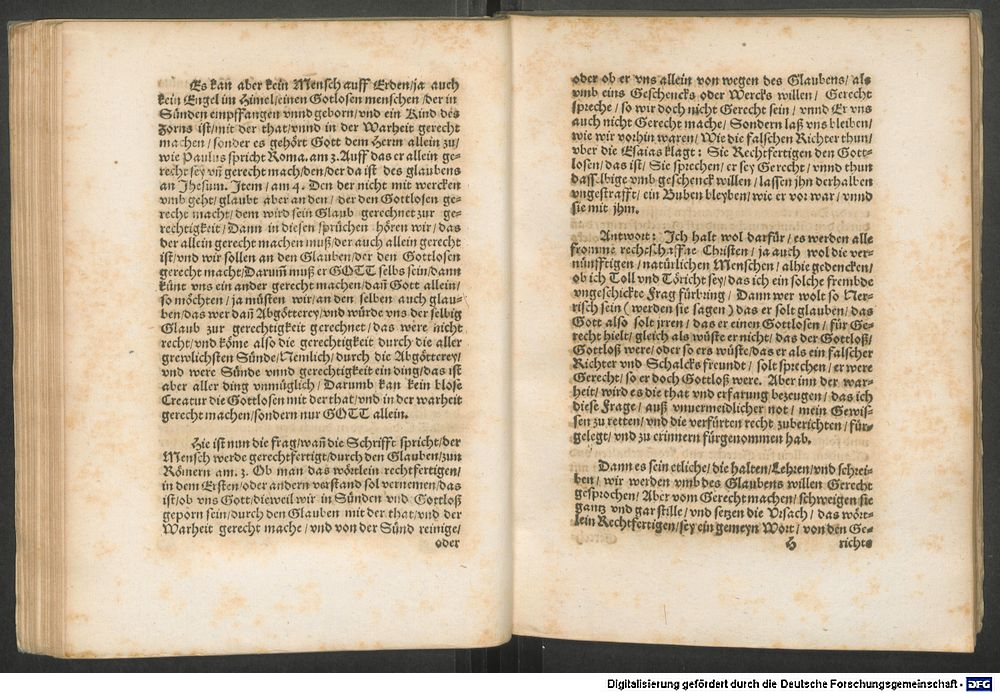 Es kan aber kein Mensch auff Erden/ja auch
kein Engel im Himel/einen Gotlosen menschen/der in
Sünden empffangen vnnd geborn/vnd ein Kind des
zorns ist/mit der that/vnnd in der Warheit gerecht
machen/sonder es gehört Gott dem Herrn allein zu/
wie Paulus spricht Roma. am 3. Auff das er allein ge-
recht sey vn̄ gerecht mach/den/der da ist des glaubens
an Jhesum. Item/am 4. Den der nicht mit wercken
vmb geht/glaubt aber an den/der den Gottlosen ge-
recht macht/dem wird sein Glaub gerechnet zur ge-
rechtigkeit/Dann in diesen sprüchen hören wir/das
der allein gerecht machen muß/der auch allein gerecht
ist/vnd wir sollen an den Glauben/der den Gottlosen
gerecht macht/Darum̄ muß er GOTT selbs sein/dann
künt vns ein ander gerecht machen/dan̄ Gott allein/
so möchten/ja müsten wir/an den selben auch glau-
ben/das wer dan̄ Abgötterey/vnd würde vns der selbig
Glaub zur gerechtigkeit gerechnet/das were nicht
recht/vnd köme also die gerechtigkeit durch die aller
grewlichsten Sünde/Nemlich/durch die Abgötterey/
vnd were Sünde vnnd gerechtigkeit ein ding/das ist
aber aller ding vnmüglich/Darumb kan kein blose
Creatur die Gottlosen mit der that/vnd in der warheit
gerecht machen/sondern nur GOTT allein.
Hie ist nun die frag/wan̄ die Schrifft spricht/der
Mensch werde gerechtfertigt/durch den Glauben/zun
Römern am. 3. Ob man das wörtlein rechtfertigen/
in dem Ersten/oder andern verstand sol vernemen/das
ist/ob vns Gott/dieweil wir in Sünden vnd Gottloß
geporn sein/durch den Glauben mit der that/vnd der
Warheit gerecht mache/vnd von der Sünd reinige/
oder
oder ob er vns allein von wegen des Glaubens/als
vmb eins Geschencks oder Wercks willen/Gerecht
spreche/so wir doch nicht Gerecht sein/vnnd Er vns
auch nicht Gerecht mache/Sondern laß vns bleiben/
wie wir vorhin waren/Wie die falschen Richter thun/
vber die Esaias klagt: Sie Rechtfertigen den Gott-
losen/das ist/Sie sprechen/er sey Gerecht/vnnd thun
dasselbige vmb geschenck willen/lassen jhn derhalben
vngestrafft/ein Buben bleyben/wie er vor war/vnnd
sie mit jhm.
Antwort: Ich halt wol darfür/es werden alle
fromme rechtschaffne Christen/ja auch wol die ver-
nünfftigen/natürlichen Menschen/alhie gedencken/
ob ich Toll vnd Töricht sey/das ich ein solche frembde
vngeschickte Frag fürbring/Dann wer wolt so Ner-
risch sein (werden sie sagen) das er solt glauben/das
Gott also solt jrren/das er einen Gottlosen/für Ge-
recht hielt/gleich als wüste er nicht/das der Gottloß/
Gottloß were/oder so ers wüste/das er als ein falscher
Richter vnd Schalcks freundt/solt sprechen/er were
Gerecht/so er doch Gottloß were. Aber inn der war-
heit/wird es die that vnd erfarung bezeugen/das ich
diese Frage/auß vnuermeidlicher not/mein Gewis-
sen zu retten/vnd die verfürten recht zuberichten/für-
gelegt/vnd zu erinnern fürgenommen hab.
Dann es sein etliche/die halten/Lehren/vnd schrei-
ben/wir werden vmb des Glaubens willen Gerecht
gesprochen/Aber vom Gerecht machen/schweigen sie
gantz vnd gar stille/vnd setzen die Vrsach/das wört-
lein Rechtfertigen/sey ein gemeyn Wort/von den Ge-
H richts
Digitalisierung gefördert durch die Deutsche Forschungsgemeinschaft - DFG